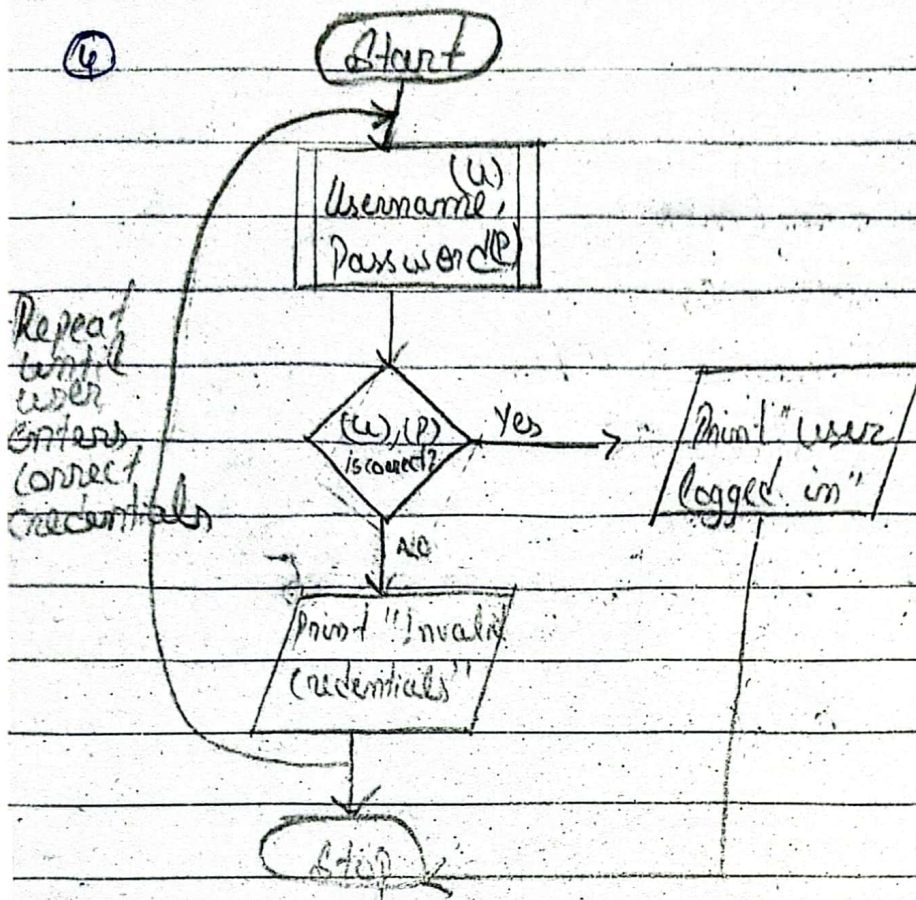 4
Start
(U)
Username,
Password(P)
Repeat
until
user
enters
correct
credentials
(U),(P)
is correct?
Yes
Print "user
logged in"
NO
Print "Invalid
Credentials"
Stop